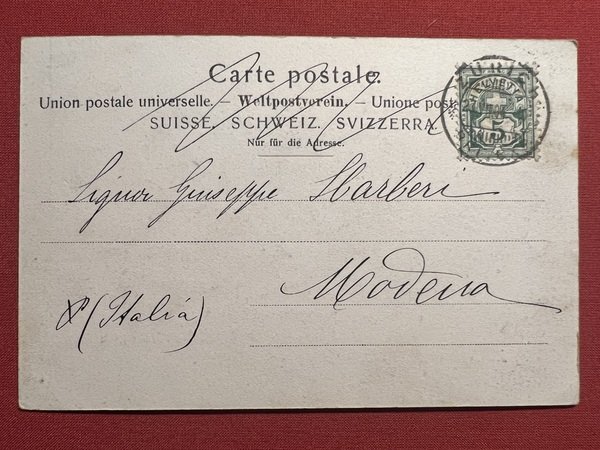 Carte postale.
Union postale universelle. — Weltpostverein. — Unione post
SUISSE. SCHWEIZ. SVIZZERA.
Nur für die Adresse.
5
Signor Giuseppe Sbarberi
Modena
(Italia)